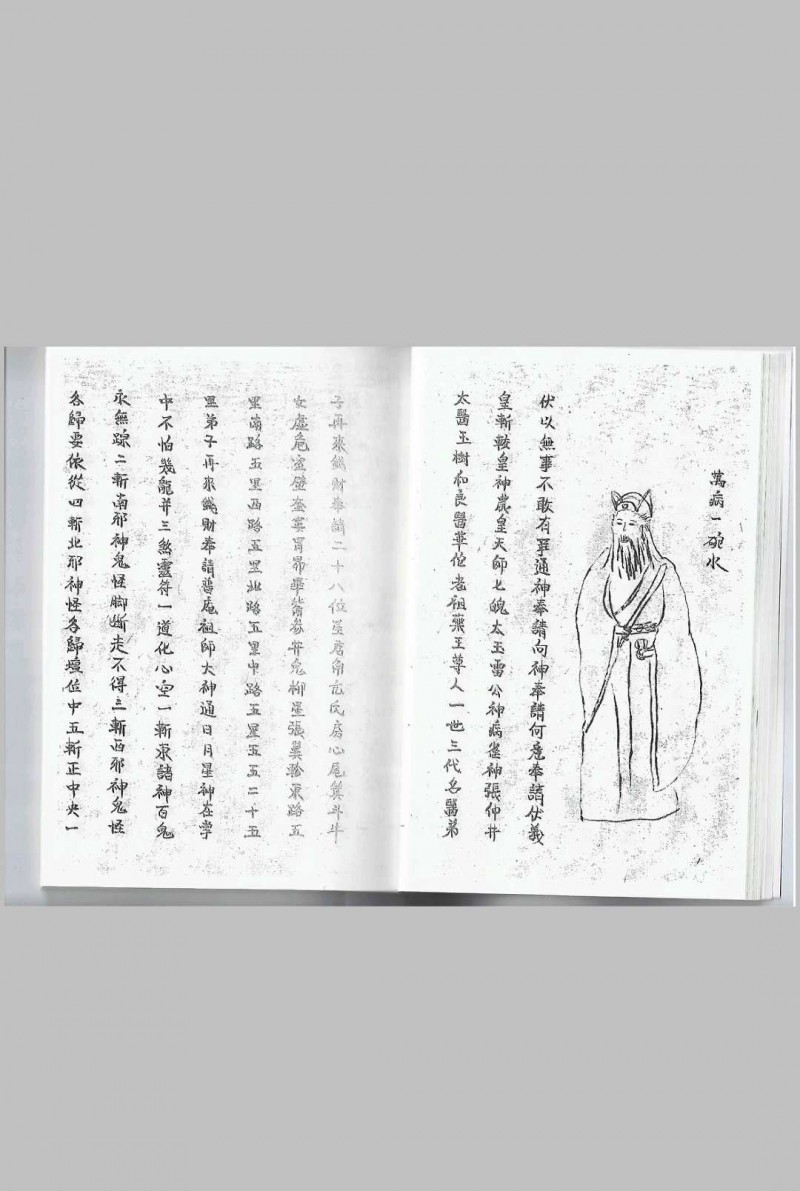 萬病一碗水
伏以無事不敢有事通神奉請向神奉請何底奉請伏羲
皇斬軟皇神農皇天師七魄太玉雷公神病雀神張仲井
太醫玉樹和良醫華位老祖藥王尊人一世三代名醫弟
子再來錢財奉請二十八位星宿角亢氏房心尾箕斗牛
女虛危室壁奎婁胃昴畢觜參井鬼柳星張翼軫東路五
里南路五里西路五里北路五里中路五里五五二十五
里弟子再來錢財奉請普庵祖師大神通日月星神在掌
中不怕幾龍并三煞靈符一道化心空一斬東諸神百鬼
永無踪二斬南邪神鬼怪脚斷走不得三斬西邪神鬼怪
各歸要依從四斬北邪神怪各歸壇位中五斬正中央一